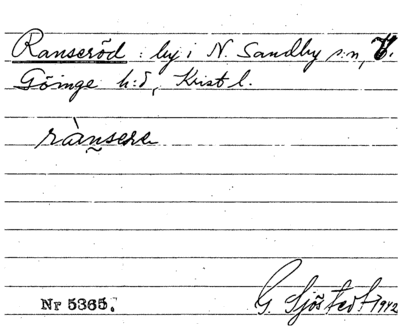 Ranseröd : by i N. Sandby s:n, V.
Göinge h:d, Krist l.
rànsera
Nr 5365.
G. Sjöstedt 1942